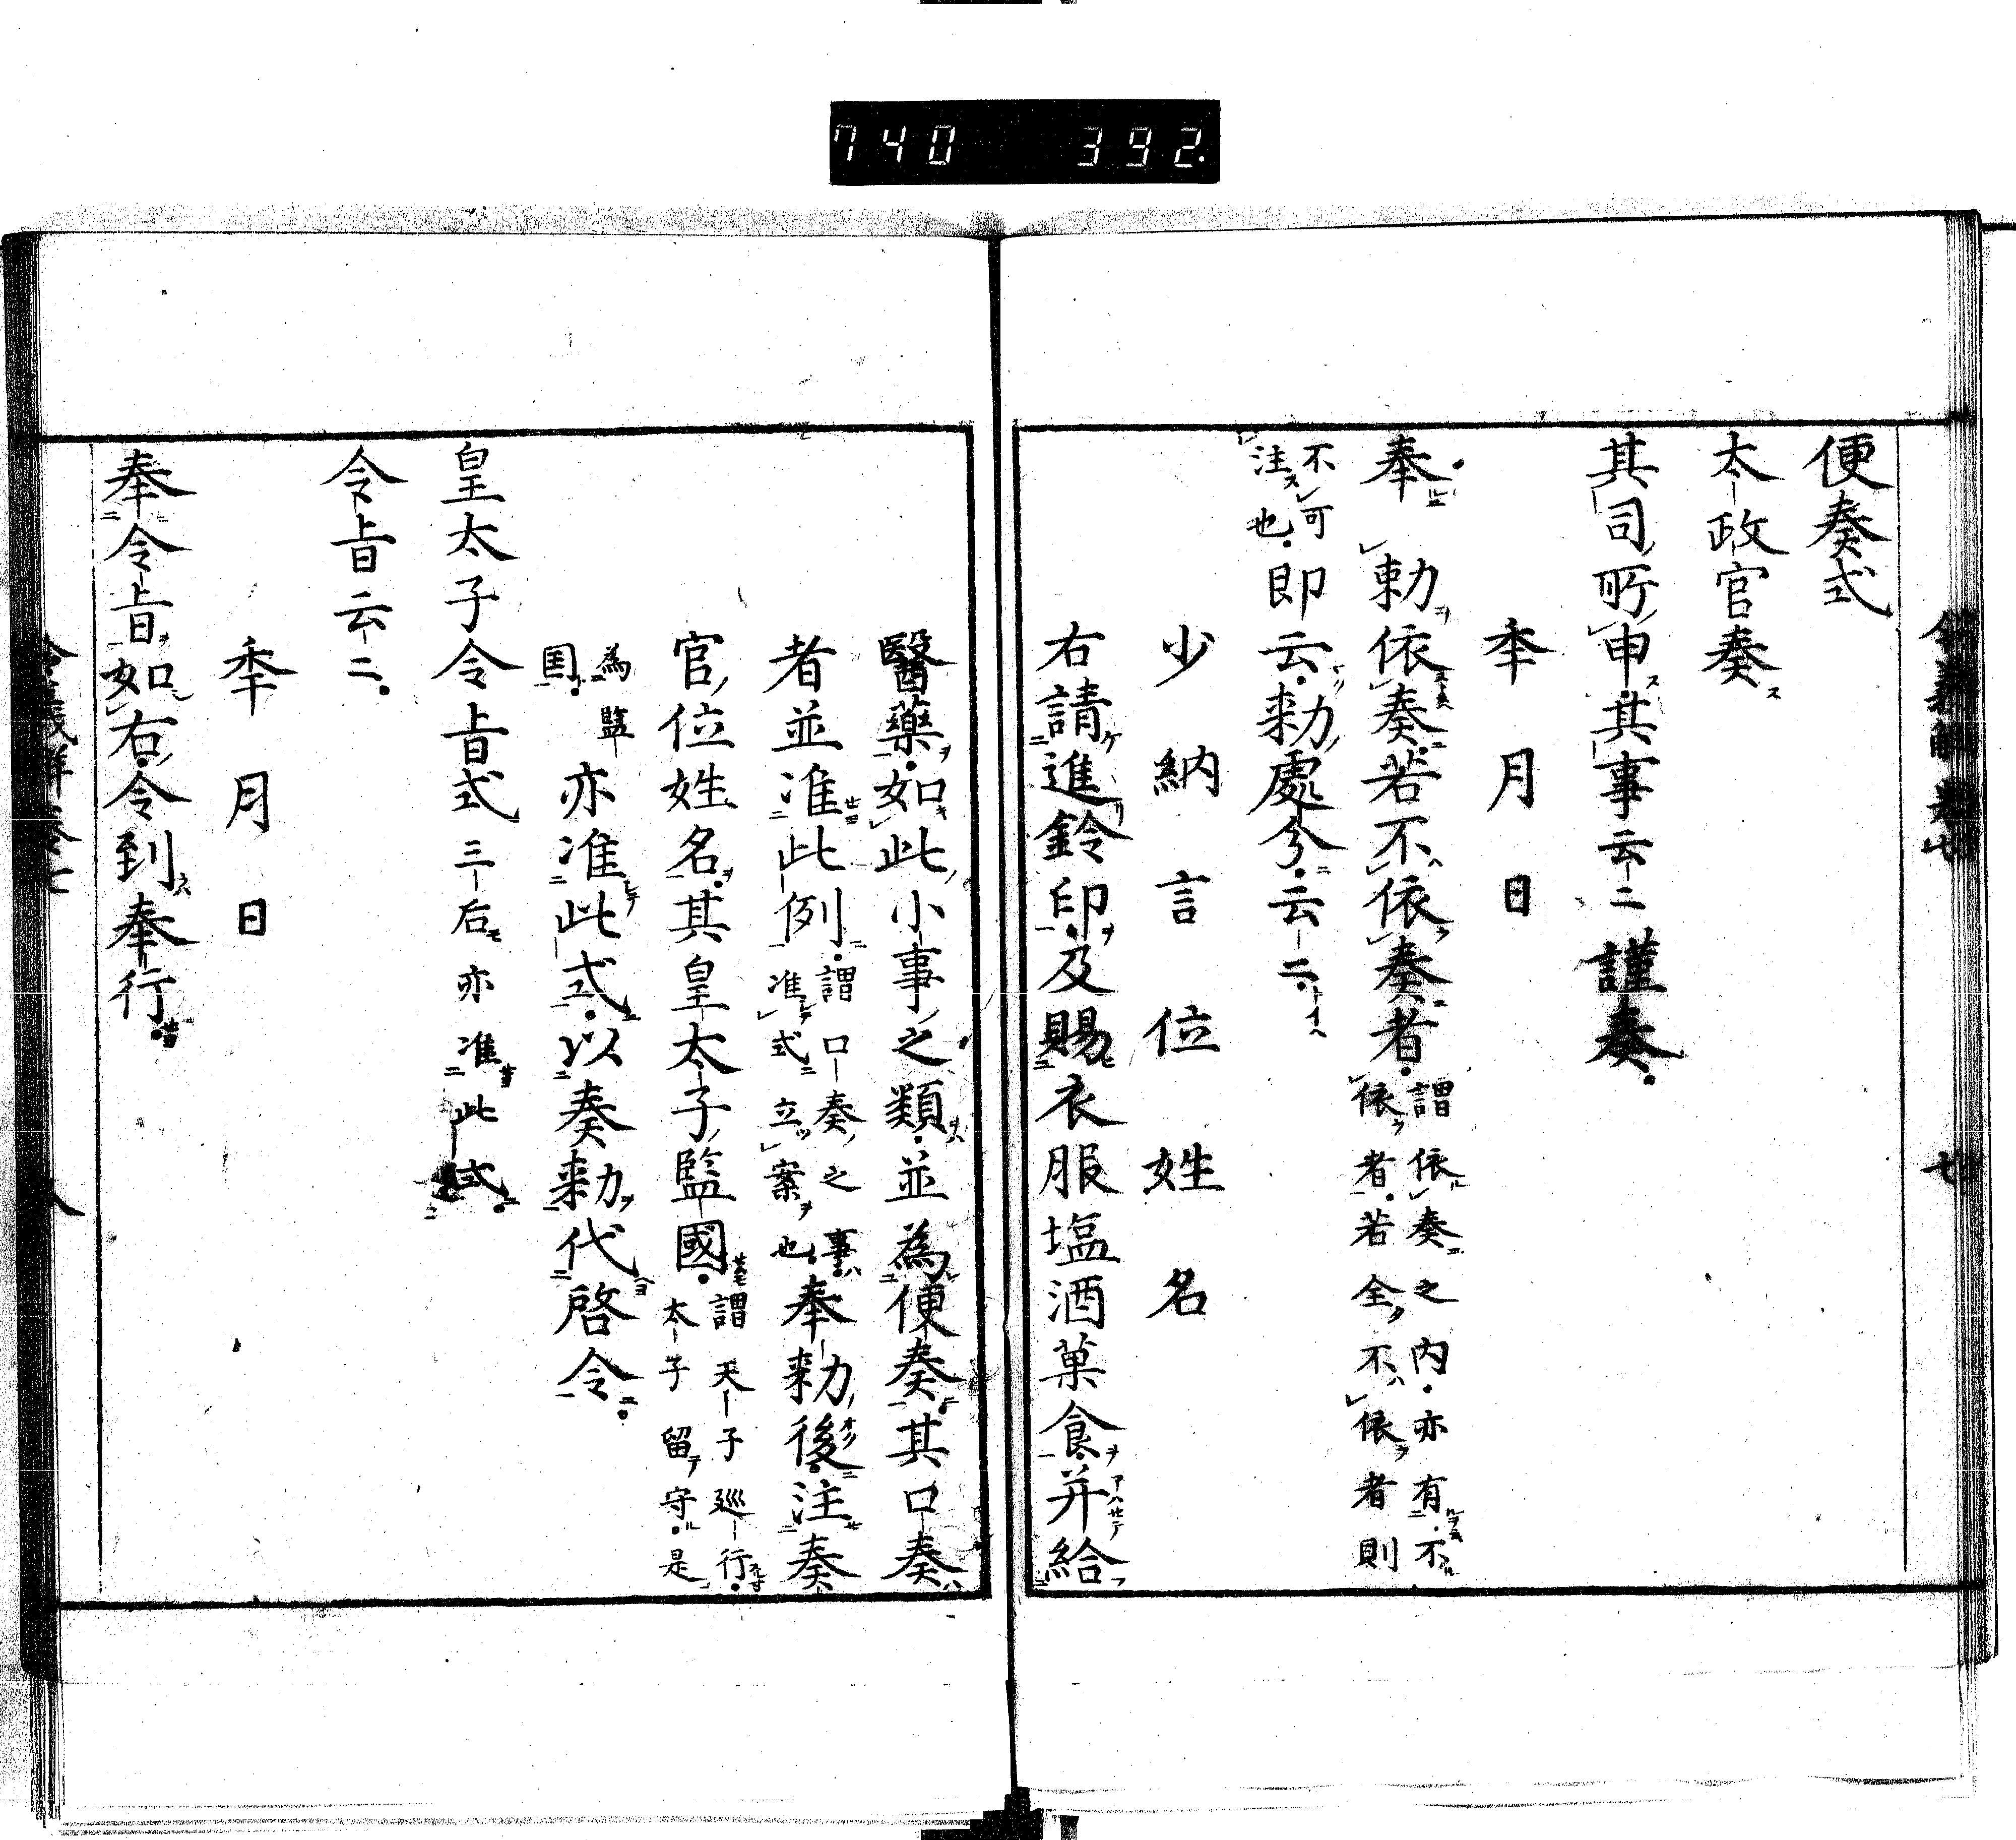 740 392.
便奏式
太政官奏
其司所申其事云二謹奏
秊月日
奉勅依奏若不依奏者謂依奏之内亦有不依者若全不依者則
不可注也即云勅處分云二
少納言位姓名
右請進鈴印及賜衣服塩酒菓食并給
醫藥如此小事之類並為便奏其口奏
者並准此例謂口奏之事准式立案也奉勅後注奏
官位姓名其皇太子監國謂天子巡行太子留守是
為監国亦准此式以奏勅代啓令
皇太子令旨式三后亦准此式
令旨云二
秊月日
奉令旨如右令到奉行